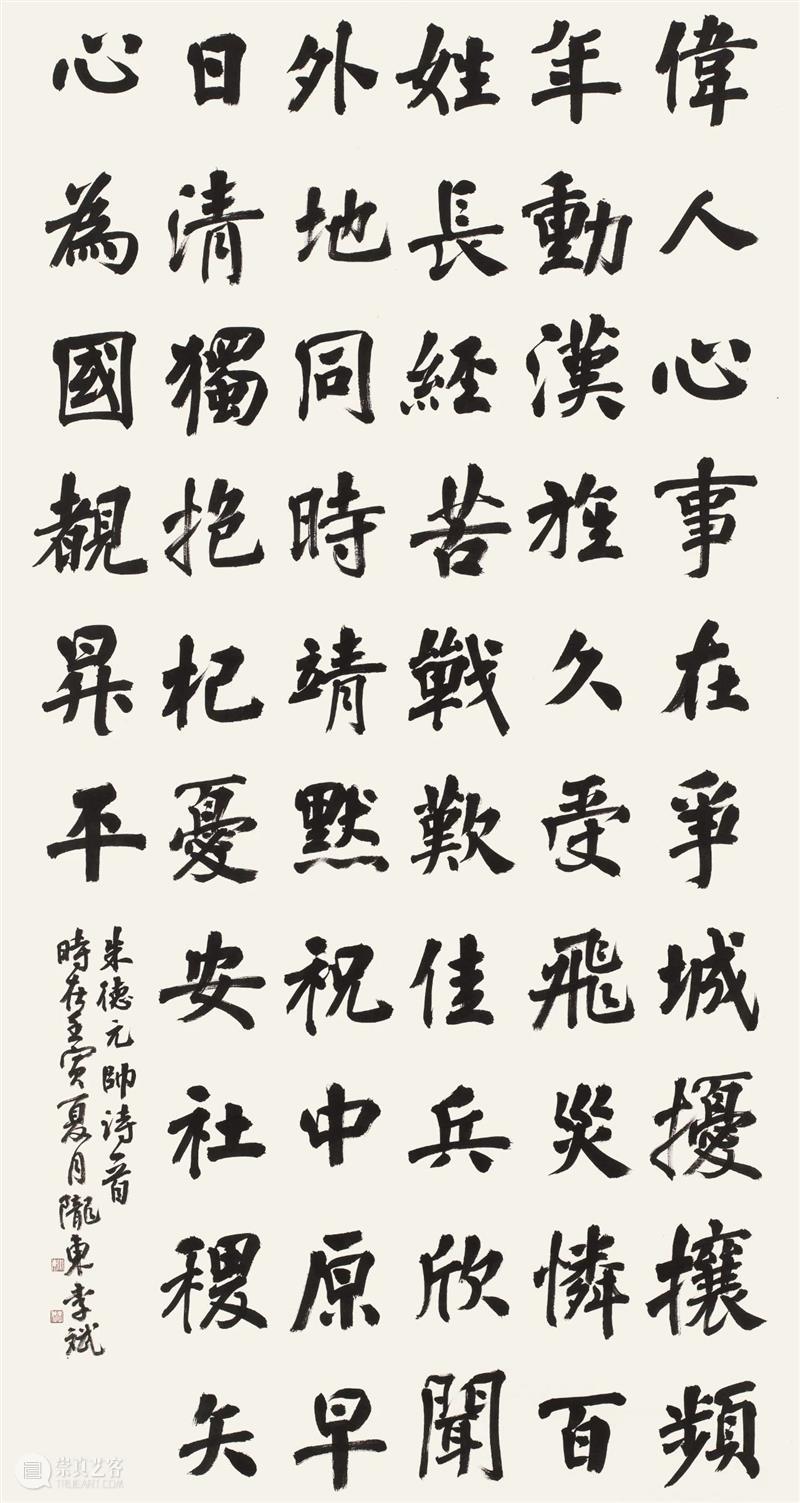 偉人心事在爭城擾攘頻
年動漢旌久受飛災憐百
姓長經苦戰歎佳兵欣聞
外地同時靖默祝中原早
日清獨抱杞憂安社稷矢
心為國覩昇平
朱德元帥詩一首
時在壬寅夏月隴東李斌
崇真艺客
TRUEART.COM